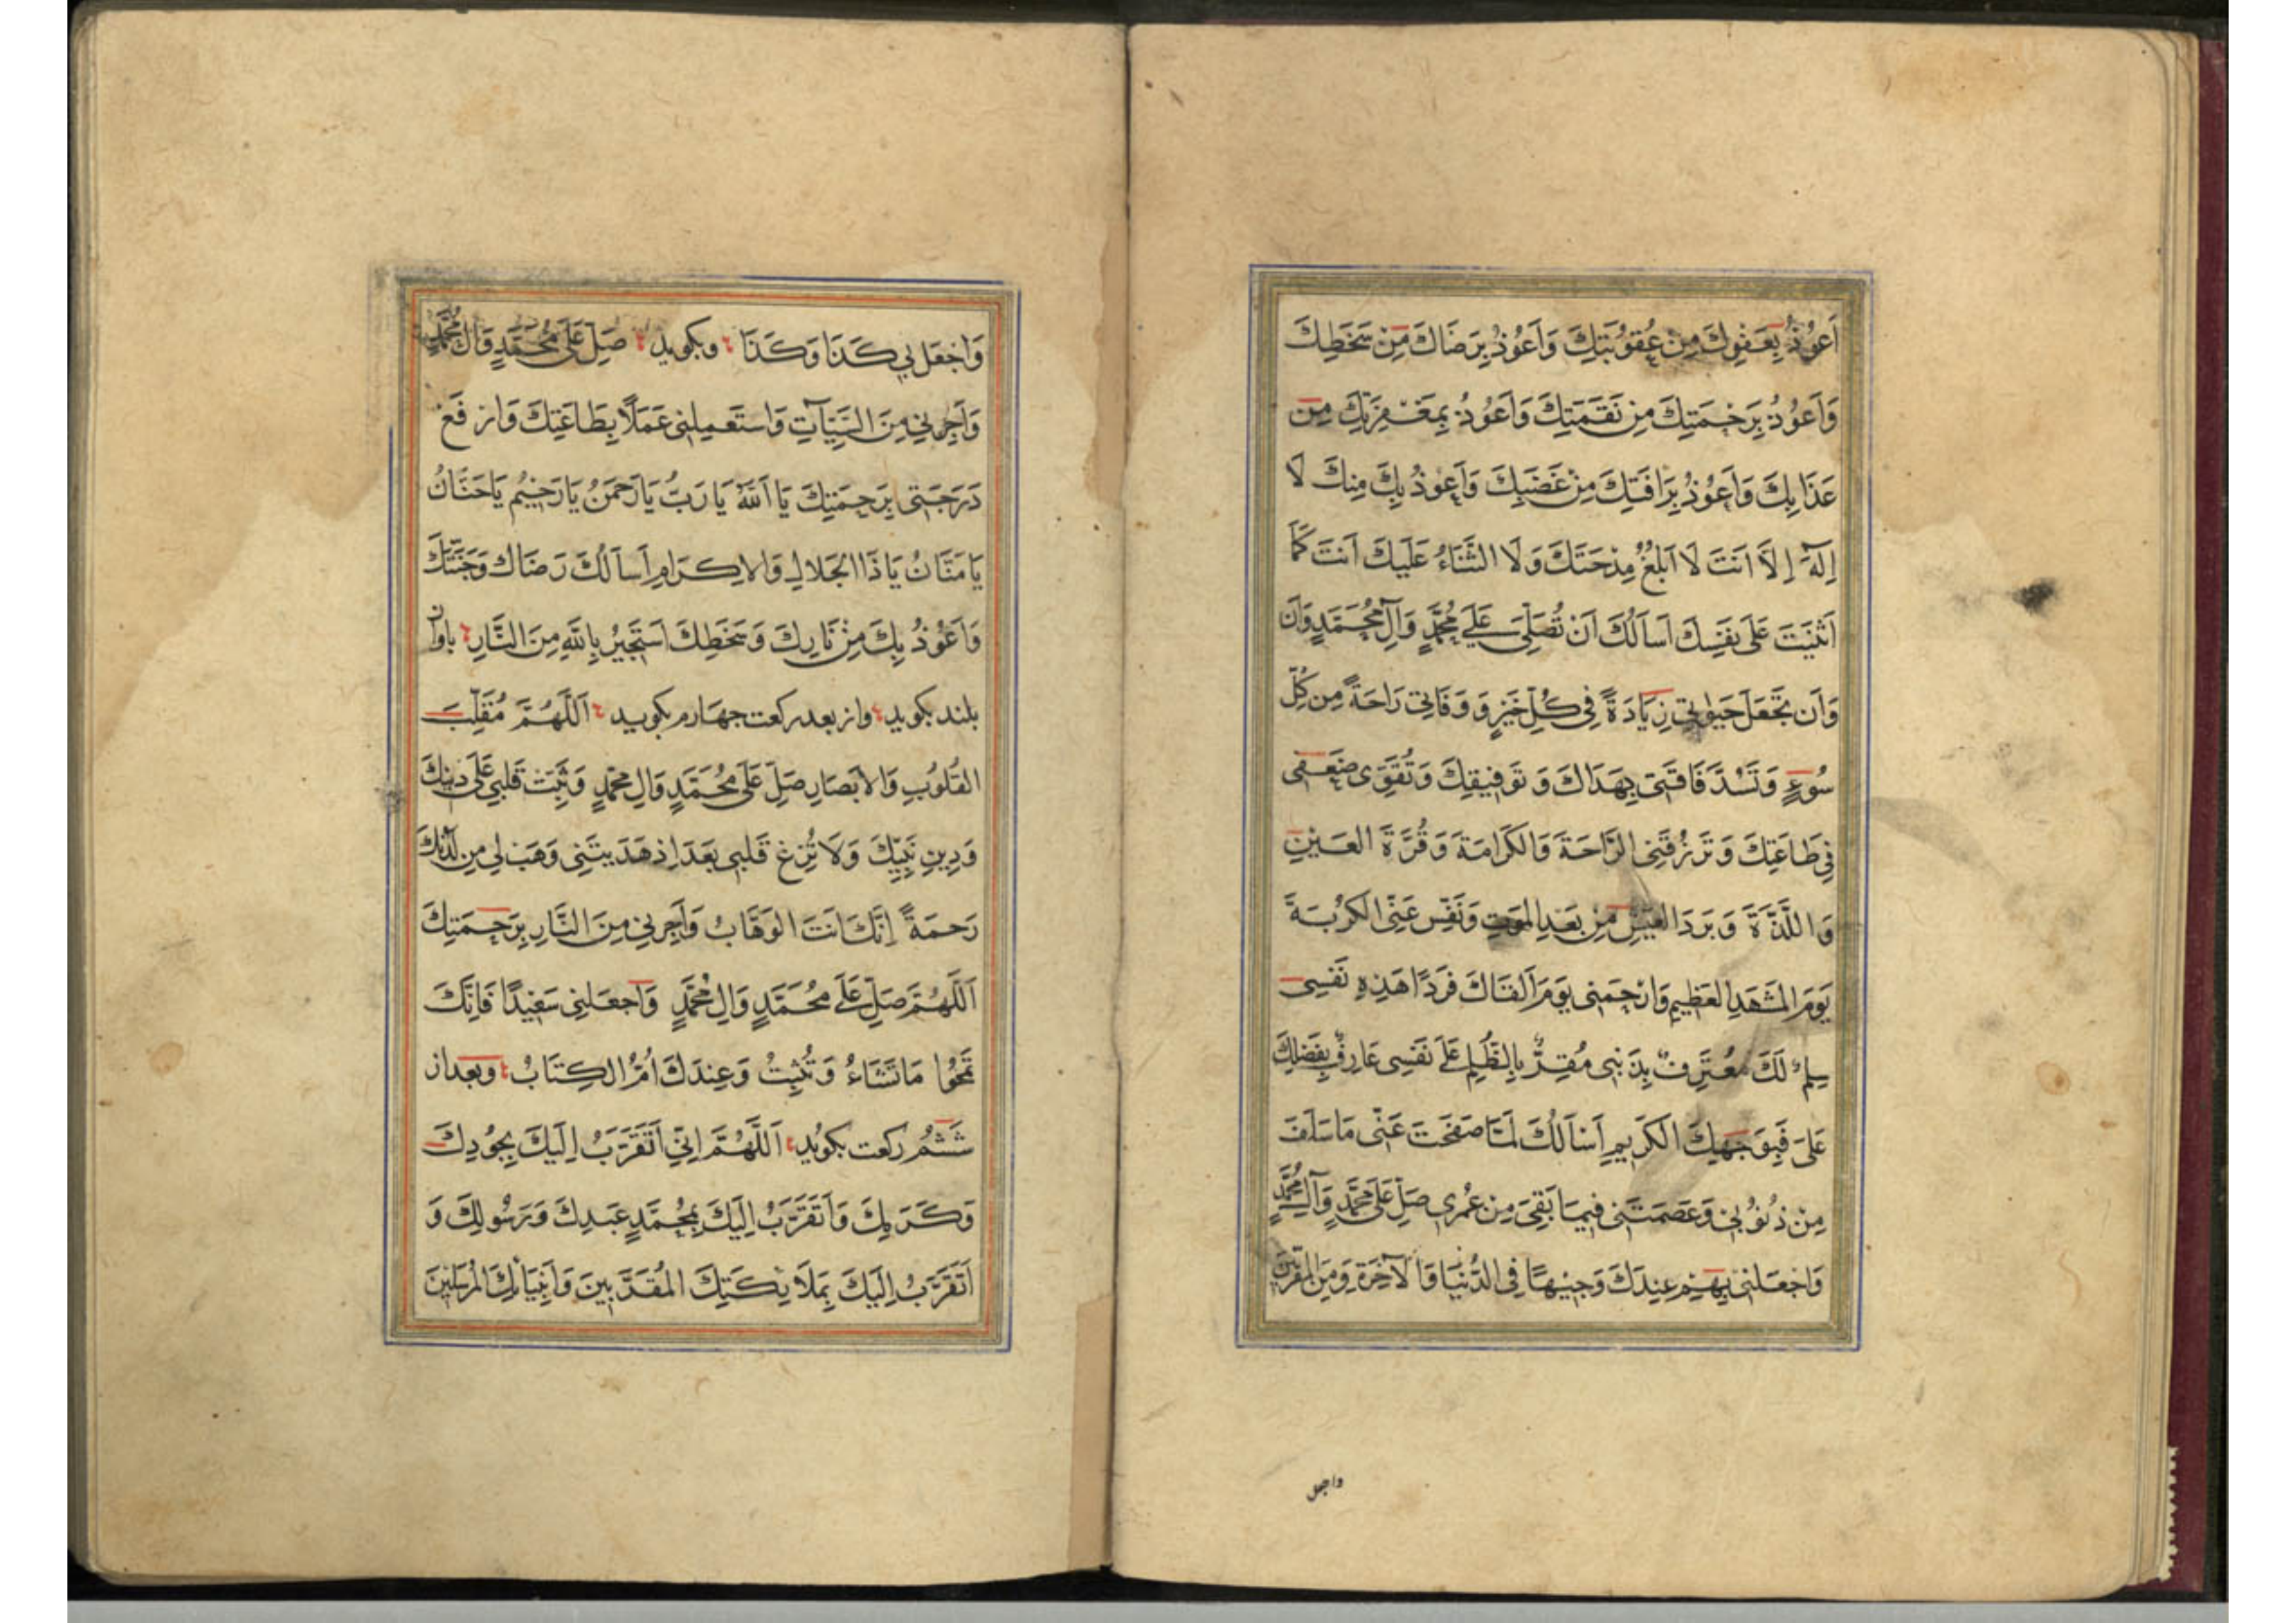 اَعُوذُ بِعَفْوِكَ مِنْ عُقُوبَتِكَ وَاَعُوذُ بِرِضَاكَ مِنْ سَخَطِكَ
وَاَعُوذُ بِرَحْمَتِكَ مِنْ نَقِمَتِكَ وَاَعُوذُ بِمَغْفِرَتِكَ مِنْ
عَذَابِكَ وَاَعُوذُ بِرَافَتِكَ مِنْ غَضَبِكَ وَاَعُوذُ بِكَ مِنْكَ لَا
اِلَهَ اِلَّا اَنْتَ لَا اَبْلُغُ مِدْحَتَكَ وَلَا الثَّنَاءُ عَلَيْكَ اَنْتَ كَمَا
اَثْنَيْتَ عَلَى نَفْسِكَ اَسْاَلُكَ اَنْ تُصَلِّيَ عَلَى مُحَمَّدٍ وَآلِ مُحَمَّدٍ وَاَنْ
وَاَنْ تَجْعَلَ حَيوتِي زِيَادَةً فِي كُلِّ خَيْرٍ وَ وَفَاتِي رَاحَةً مِنْ كُلِّ
سُوءٍ وَتَسُدَّ فَاقَتِي بِهُدَاكَ وَ تَوْفِيقِكَ وَتُقَوِّيَ ضَعْفِي
فِي طَاعَتِكَ وَتَرْزُقَنِي الرَّاحَةَ وَالْكَرَامَةَ وَقُرَّةَ الْعَيْنِ
وَاللَّذَّةَ وَبَرْدَ الْعَيْشِ مِنْ بَعْدِ الْمَوْتِ وَنَفِّسْ عَنِّي الْكُرْبَةَ
يَوْمَ الْمَشْهَدِ الْعَظِيمِ وَارْحَمْنِي يَوْمَ اَلْقَاكَ فَرْدًا هَذِهِ نَفْسِي
سِلْمٌ لَكَ مُعْتَرِفٌ بِذَنْبِي مُقِرٌّ بِالظُّلْمِ عَلَى نَفْسِي عَارِفٌ بِفَضْلِكَ
عَلَيَّ فَبِوَجْهِكَ الْكَرِيمِ اَسْاَلُكَ لَمَّا صَفَحْتَ عَنِّي مَا سَلَفَ
مِنْ ذُنُوبِي وَعَصَمْتَنِي فِيمَا بَقِيَ مِنْ عُمْرِي صَلِّ عَلَى مُحَمَّدٍ وَآلِ مُحَمَّدٍ
وَاجْعَلْنِي بِهِمْ عِنْدَكَ وَجِيهًا فِي الدُّنْيَا وَالْآخِرَةِ وَمِنَ الْمُقَرَّبِينَ
واجعل
وَاجْعَلْ بِي كَذَا وَكَذَا وبكويد صَلِّ عَلَى مُحَمَّدٍ وَآلِ مُحَمَّدٍ
وَاَجِرْنِي مِنَ السَّيِّئَاتِ وَاسْتَعْمِلْنِي عَمَلًا بِطَاعَتِكَ وَارْفَعْ
دَرَجَتِي بِرَحْمَتِكَ يَا اَللَّهُ يَا رَبُّ يَا رَحْمَنُ يَا رَحِيمُ يَا حَنَّانُ
يَا مَنَّانُ يَا ذَا الْجَلَالِ وَالْاِكْرَامِ اَسْاَلُكَ رِضَاكَ وَجَنَّتَكَ
وَاَعُوذُ بِكَ مِنْ نَارِكَ وَسَخَطِكَ اَسْتَجِيرُ بِاللَّهِ مِنَ النَّارِ باواز
بلند بكويد واز بعد ركعت چهارم بكويد اَللَّهُمَّ مُقَلِّبَ
الْقُلُوبِ وَالْاَبْصَارِ صَلِّ عَلَى مُحَمَّدٍ وَآلِ مُحَمَّدٍ وَثَبِّتْ قَلْبِي عَلَى دِينِكَ
وَدِينِ نَبِيِّكَ وَلَا تُزِغْ قَلْبِي بَعْدَ اِذْ هَدَيْتَنِي وَهَبْ لِي مِنْ لَدُنْكَ
رَحْمَةً اِنَّكَ اَنْتَ الْوَهَّابُ وَاَجِرْنِي مِنَ النَّارِ بِرَحْمَتِكَ
اَللَّهُمَّ صَلِّ عَلَى مُحَمَّدٍ وَآلِ مُحَمَّدٍ وَاجْعَلْنِي سَعِيدًا فَاِنَّكَ
تَمْحُوا مَا تَشَاءُ وَتُثْبِتُ وَعِنْدَكَ اُمُّ الْكِتَابُ وبعد از
شَشُمْ ركعت بكويد اَللَّهُمَّ اِنِّي اَتَقَرَّبُ اِلَيْكَ بِجُودِكَ
وَكَرَمِكَ وَاَتَقَرَّبُ اِلَيْكَ بِمُحَمَّدٍ عَبْدِكَ وَرَسُولِكَ وَ
اَتَقَرَّبُ اِلَيْكَ بِمَلَائِكَتِكَ الْمُقَرَّبِينَ وَاَنْبِيَائِكَ الْمُرْسَلِينَ